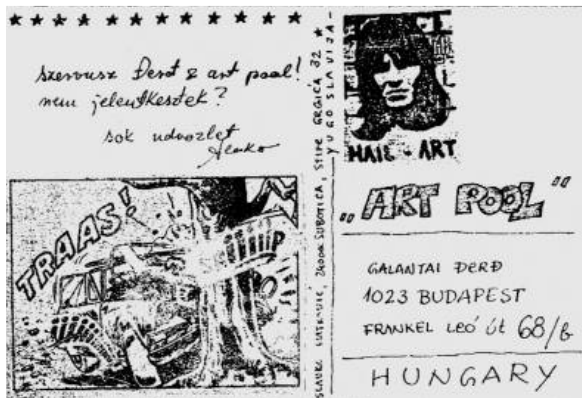 szervusz Đerđ & art pool!
nem jelentkeztek?
sok udvozlet
TRAAS!
24000 SUBOTICA, STIPE GRGIĆA 32 ★
YUGOSLAVIJA
MAIL-ART
„ART POOL"
GALANTAI ĐERĐ
1023 BUDAPEST
FRANKEL LEÓ ÚT 68/b
HUNGARY